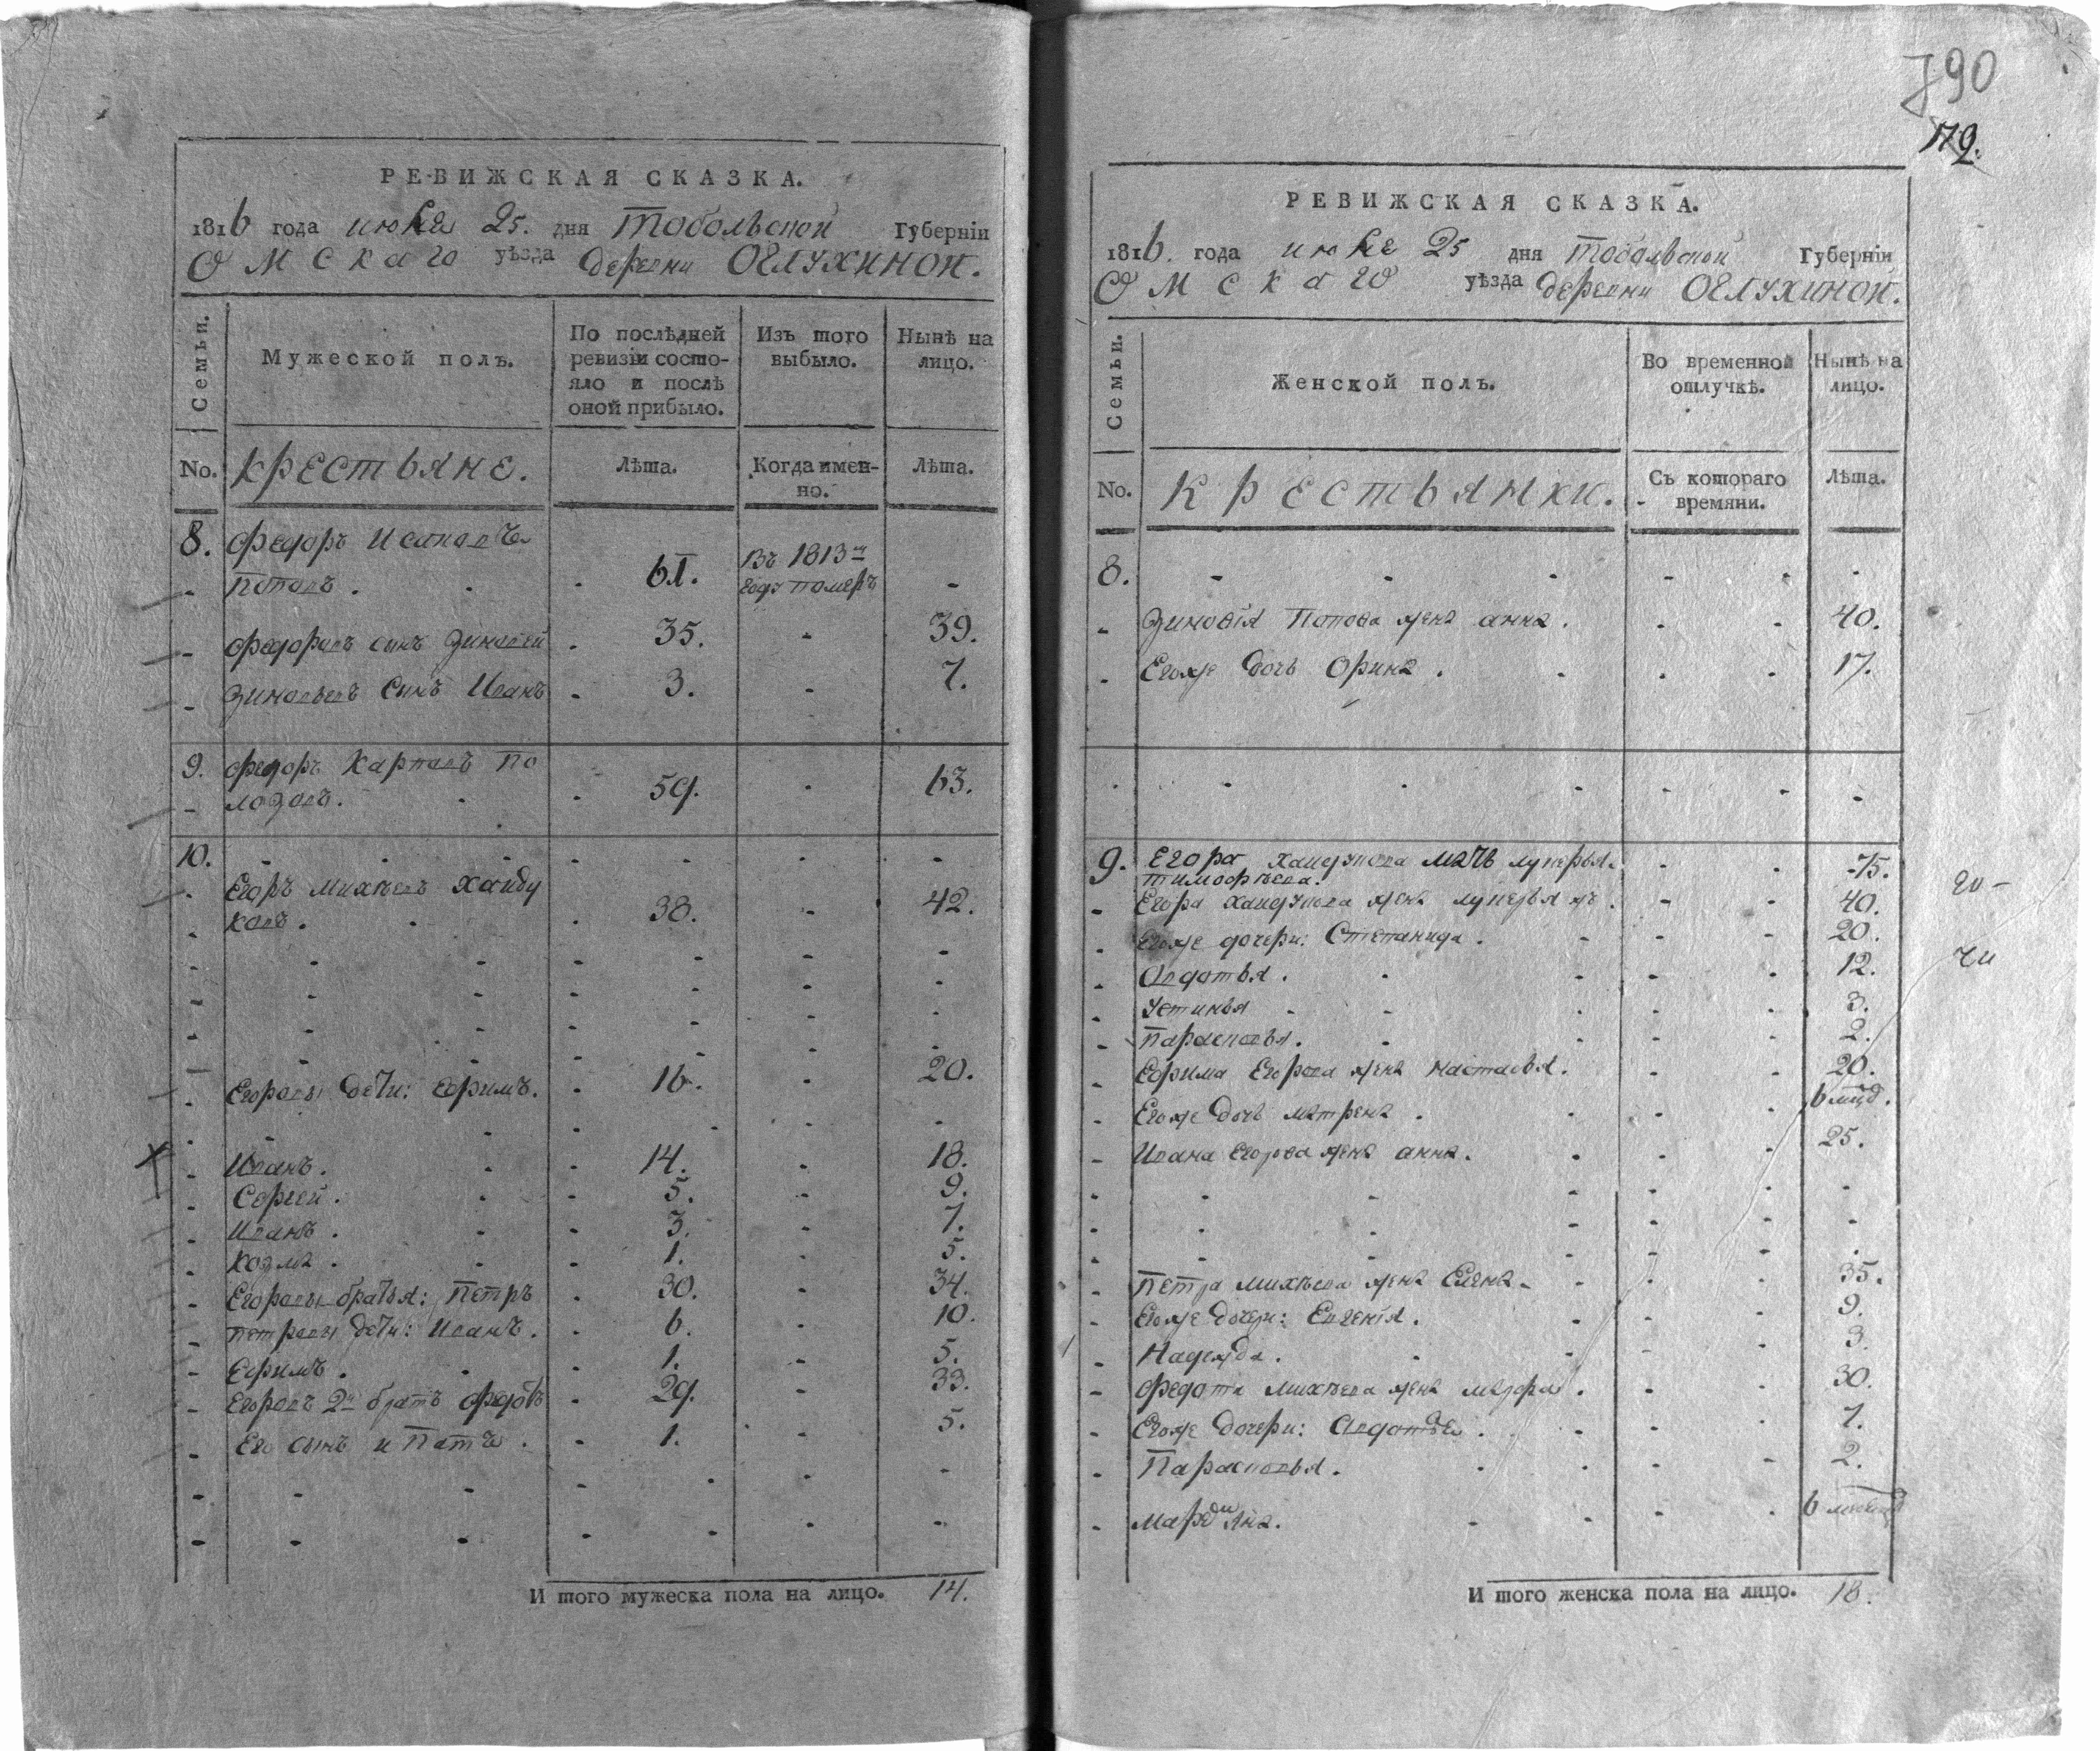 РЕВИЖСКАЯ СКАЗКА.
1816 года июня 25. дня Тобольской Губерніи
Омскаго уѣзда деревни Оглухиной.
Семьи.
Мужеской полъ.
По послѣдней ревизіи состояло и послѣ оной прибыло.
Изъ того выбыло.
Нынѣ на лицо.
No. Крестьяне.
Лѣта.
Когда имен-
но.
Лѣта.
8. Федоръ
Поповъ . 61. Въ 1813 м году померъ -
- Федоровъ сынъ Зиновей . 35. - 39.
- Зиновьевъ сынъ Иванъ - 3. - 7.
9. Федоръ Карповъ По
- лозовъ. 59. - 63.
10.
Егоръ Михѣевъ Хайду
ковъ. 38. - 42.
Егоровы дети: Ефимъ. 16. - 20.
Иванъ. 14. 18.
Сергей. 5. 9.
Иванъ. 3. 7.
Козма. 1. 5.
Егоровы братья: Петръ 30. 34.
Петровы дети: Иванъ. 6. 10.
Ефимъ. 1. 5.
Егоровъ 2й братъ Федотъ 29. 33.
Его сынъ Ипатъ. 1. 5.
И того мужеска пола на лицо. 14.
790
179.
РЕВИЖСКАЯ СКАЗКА.
1816. года июня 25 дня Тобольской Губерніи
Омскаго уѣзда деревни Оглухиной.
Семьи.
Женской полъ.
Во временной отлучкѣ.
Нынѣ на лицо.
No. Крестьянки.
Съ котораго времяни.
Лѣта.
8.
- Зиновія Попова жена анна. 40.
- Егоже дочь Орина. 17.
9. Егора Хайдукова мать лукерья 75.
тимофѣева.
- Егора Хайдукова жена лукерья 40.
- Егоже дочери: Степанида. 20.
- Авдотья. 12.
- Устинья 3.
- Парасковья. 2.
- Ефима Егорова жена настасья. 20.
- Егоже дочь матрена. 6 мцд.
- Ивана Егорова жена анна. 25.
- Петра михѣева жена Елена 35.
- Егоже дочери: Евгенія. 9.
- Надежда. 3.
- Федота михѣева жена 30.
- Егоже дочери: Авдотья. 7.
- Парасковья. 2.
- 6
И того женска пола на лицо. 18.